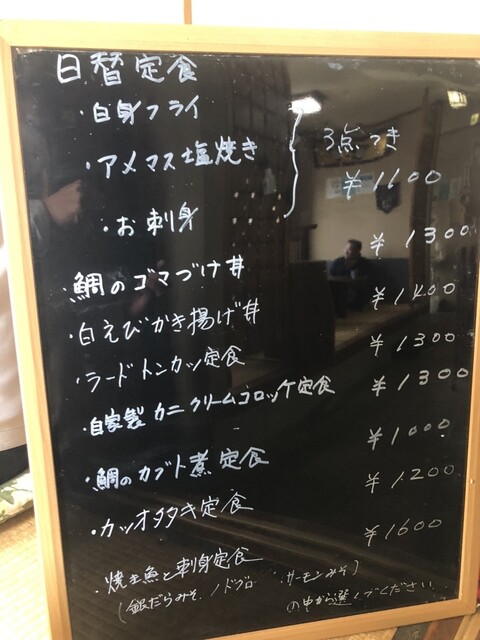 日替定食
・白身フライ
・アメマス塩焼き
・お刺身
3点つき
¥1100
・鯛のゴマづけ丼 ¥1300
・白えびかき揚げ丼 ¥1400
・ラードトンカツ定食 ¥1300
・自家製カニクリームコロッケ定食 ¥1300
・鯛のカブト煮定食 ¥1000
・カツオタタキ定食 ¥1200
・焼魚と刺身定食 ¥1600
(銀だらみそ、ノドグロ サーモンみそ)
の中から選んでください